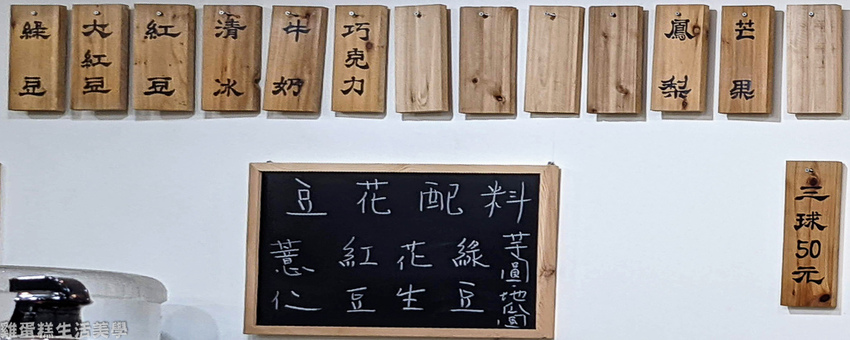 綠豆
大紅豆
紅豆
清冰
牛奶
巧克力
鳳梨
芒果
三球50元
豆花配料
薏仁
紅豆
花生
綠豆
芋圓·地圓
雞蛋糕生活美學